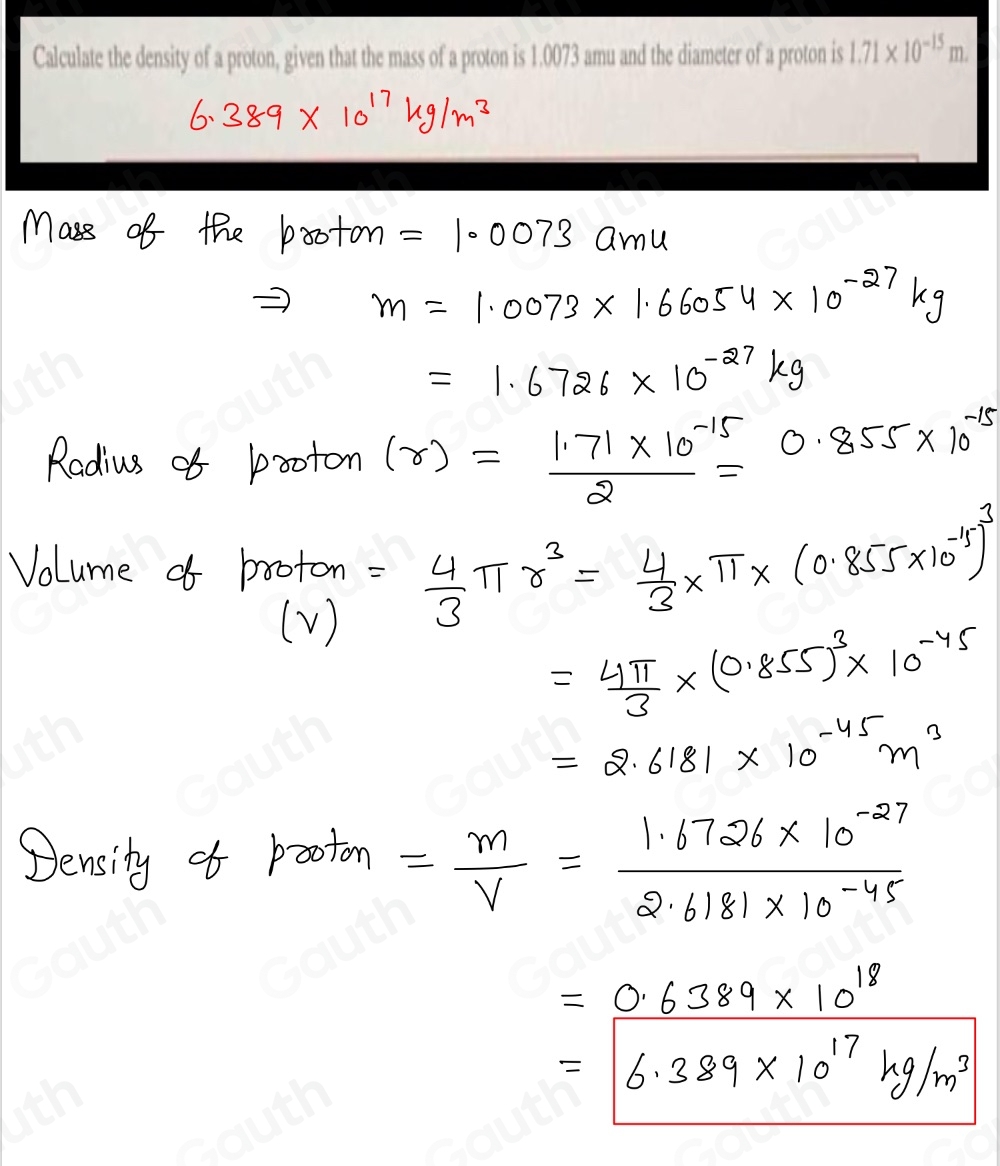 Calculate the density of a proton, given that the mass of a proton is 1.0073 amu and the diameter of a proton is 1.71 × 10⁻¹⁵ m.
6.389 × 10¹⁷ kg/m³
Mass of the proton = 1.0073 amu
⇒ m = 1.0073 × 1.66054 × 10⁻²⁷ kg
= 1.6726 × 10⁻²⁷ kg
Radius of proton (r) = 1.71 × 10⁻¹⁵ / 2 = 0.855 × 10⁻¹⁵
Volume of proton (V) = 4/3 π r³ = 4/3 × π × (0.855×10⁻¹⁵)³
= 4π/3 × (0.855)³ × 10⁻⁴⁵
= 2.6181 × 10⁻⁴⁵ m³
Density of proton = m/V = 1.6726 × 10⁻²⁷ / 2.6181 × 10⁻⁴⁵
= 0.6389 × 10¹⁸
= 6.389 × 10¹⁷ kg/m³
Gauth